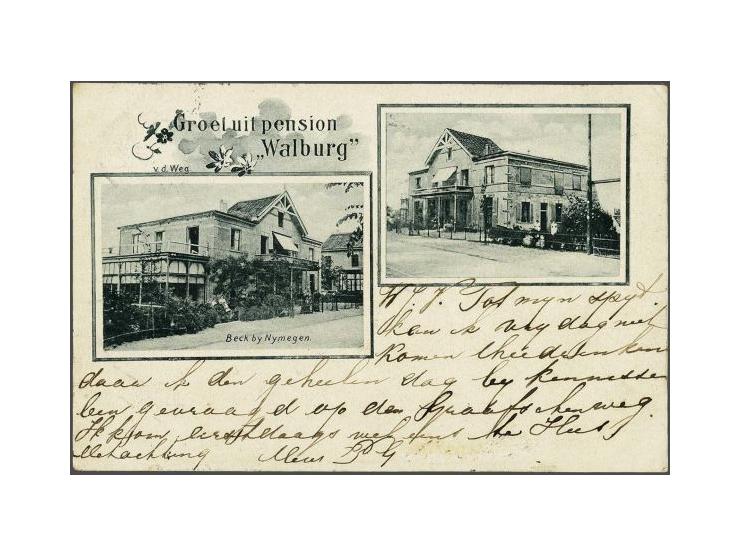 Groet uit pension
„Walburg”
v. d. Weg
Beck by Nymegen.
Tot myn spyt
kan ik vrydag niet
komen theedrinken
daar ik den geheelen dag by kennissen
ben gevraagd op den Graafschenweg.
Ik kom eerstdaags wel eens te Huis
Uw PG